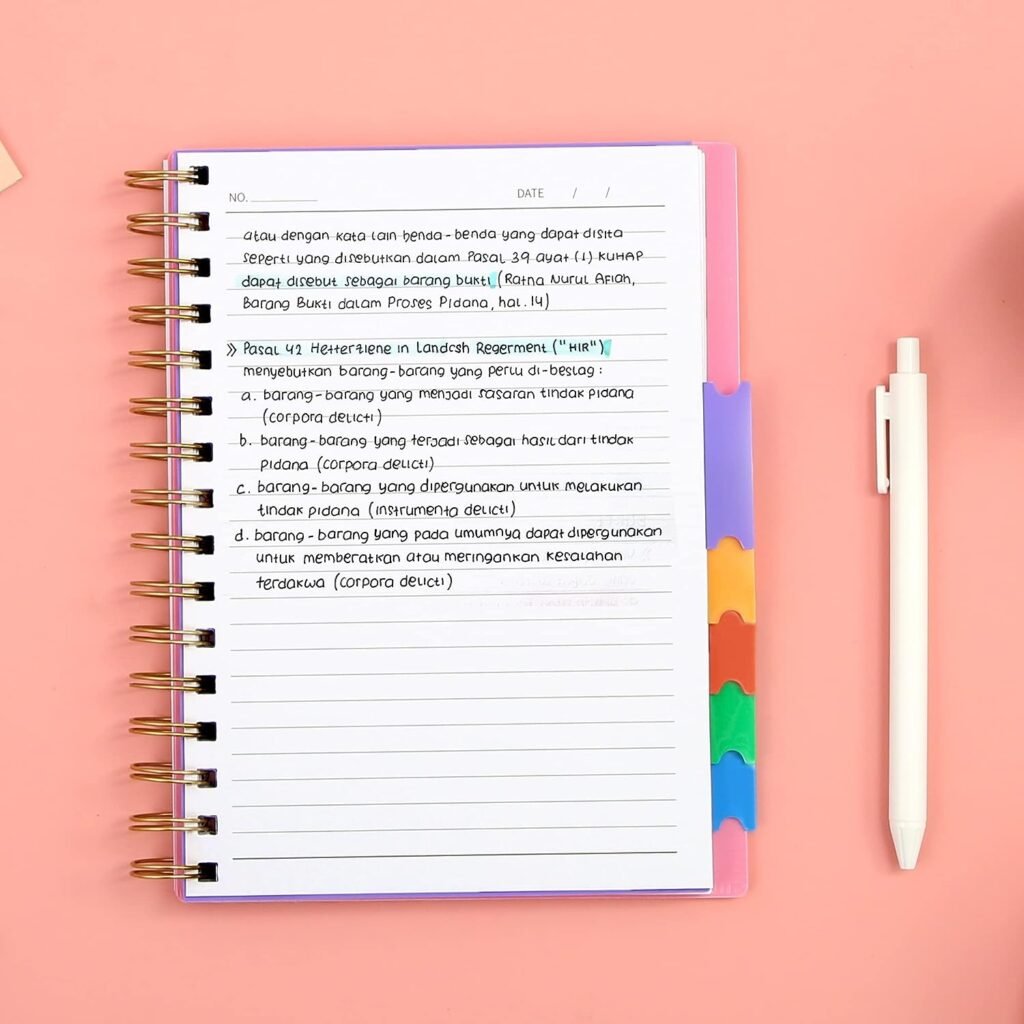 NO.
DATE / /
atau dengan kata lain benda-benda yang dapat disita
seperti yang disebutkan dalam Pasal 39 ayat (1) KUHAP
dapat disebut sebagai barang bukti (Ratna Nurul Afiah,
Barang Bukti dalam Proses Pidana, hal. 14)
» Pasal 42 Hetterziene in Landcsh Regerment ("HIR")
menyebutkan barang-barang yang perlu di-beslag :
a. barang-barang yang menjadi sasaran tindak pidana
(corpora delicti)
b. barang-barang yang terjadi sebagai hasil dari tindak
pidana (corpora delicti)
c. barang-barang yang dipergunakan untuk melakukan
tindak pidana (instrumenta delicti)
d. barang-barang yang pada umumnya dapat dipergunakan
untuk memberatkan atau meringankan kesalahan
terdakwa (corpora delicti)